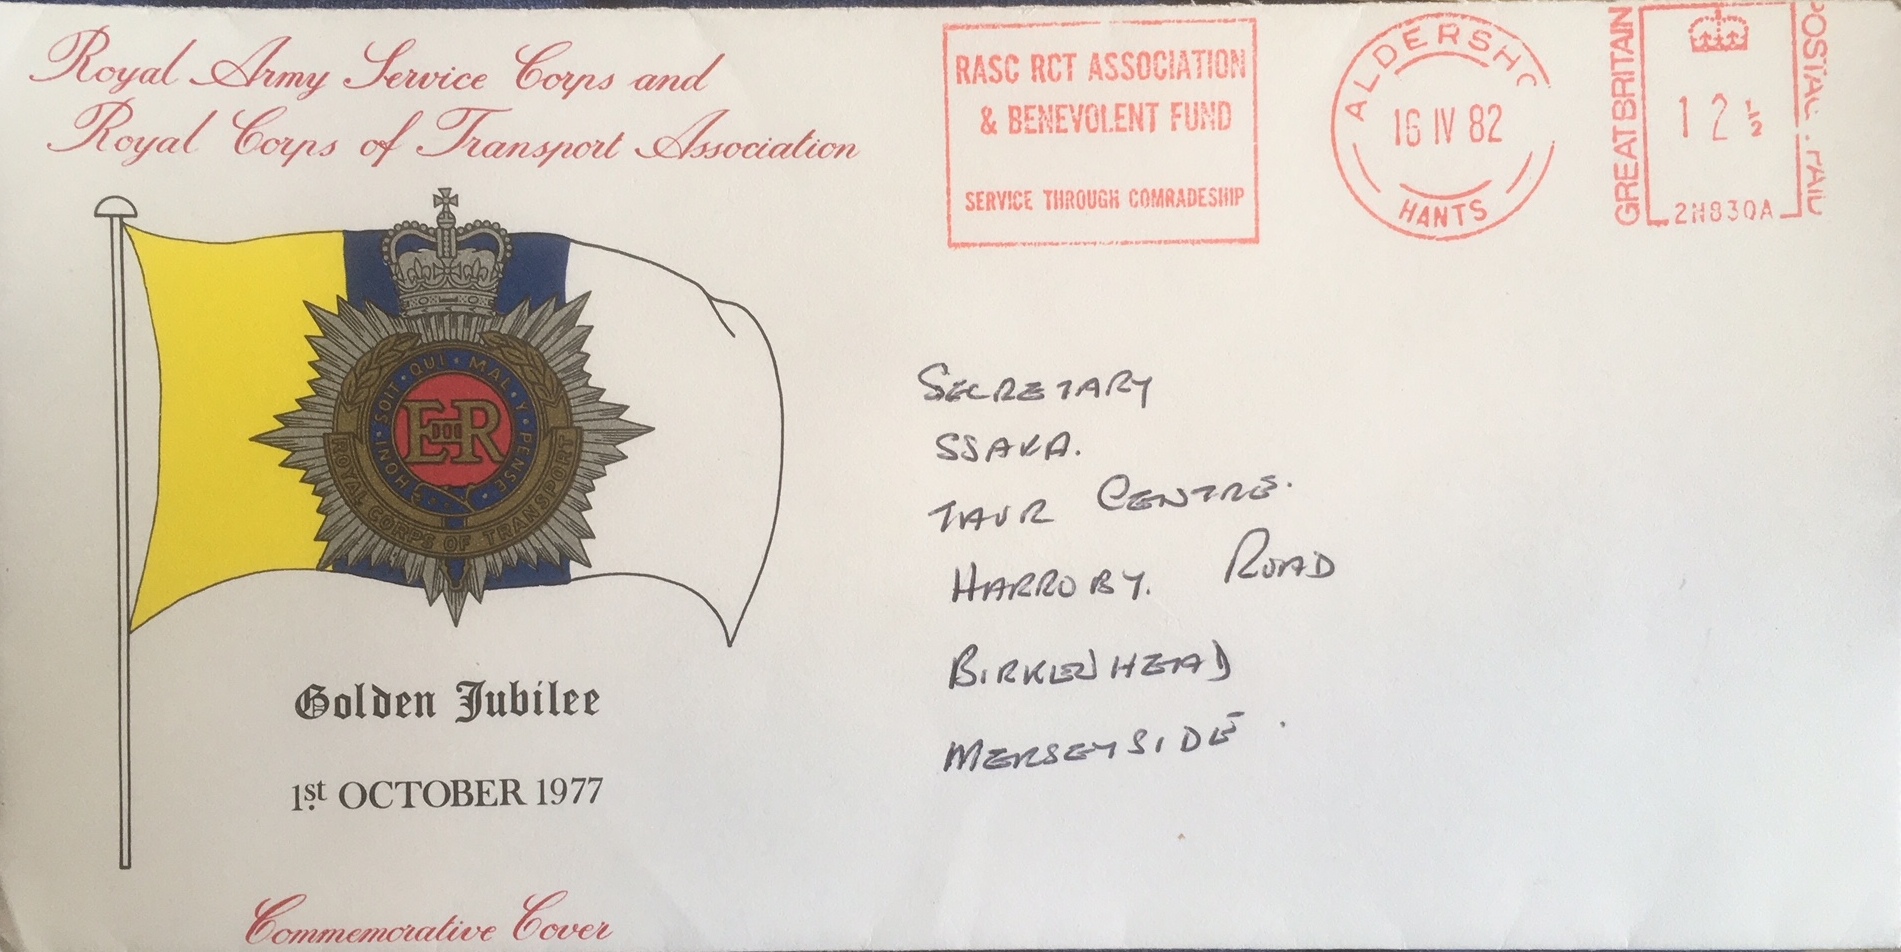 Royal Army Service Corps and
Royal Corps of Transport Association
HONI · SOIT · QUI · MAL · Y · PENSE
EIIR
ROYAL CORPS OF TRANSPORT
Golden Jubilee
1st OCTOBER 1977
Commemorative Cover
RASC RCT ASSOCIATION
& BENEVOLENT FUND
SERVICE THROUGH COMRADESHIP
ALDERSHO
16 IV 82
HANTS
GREAT BRITAIN
12½
POSTAGE PAID
SECRETARY
SSAVA.
TAVR CENTRE.
HARROBY. ROAD
BIRKENHEAD
MERSEYSIDE.